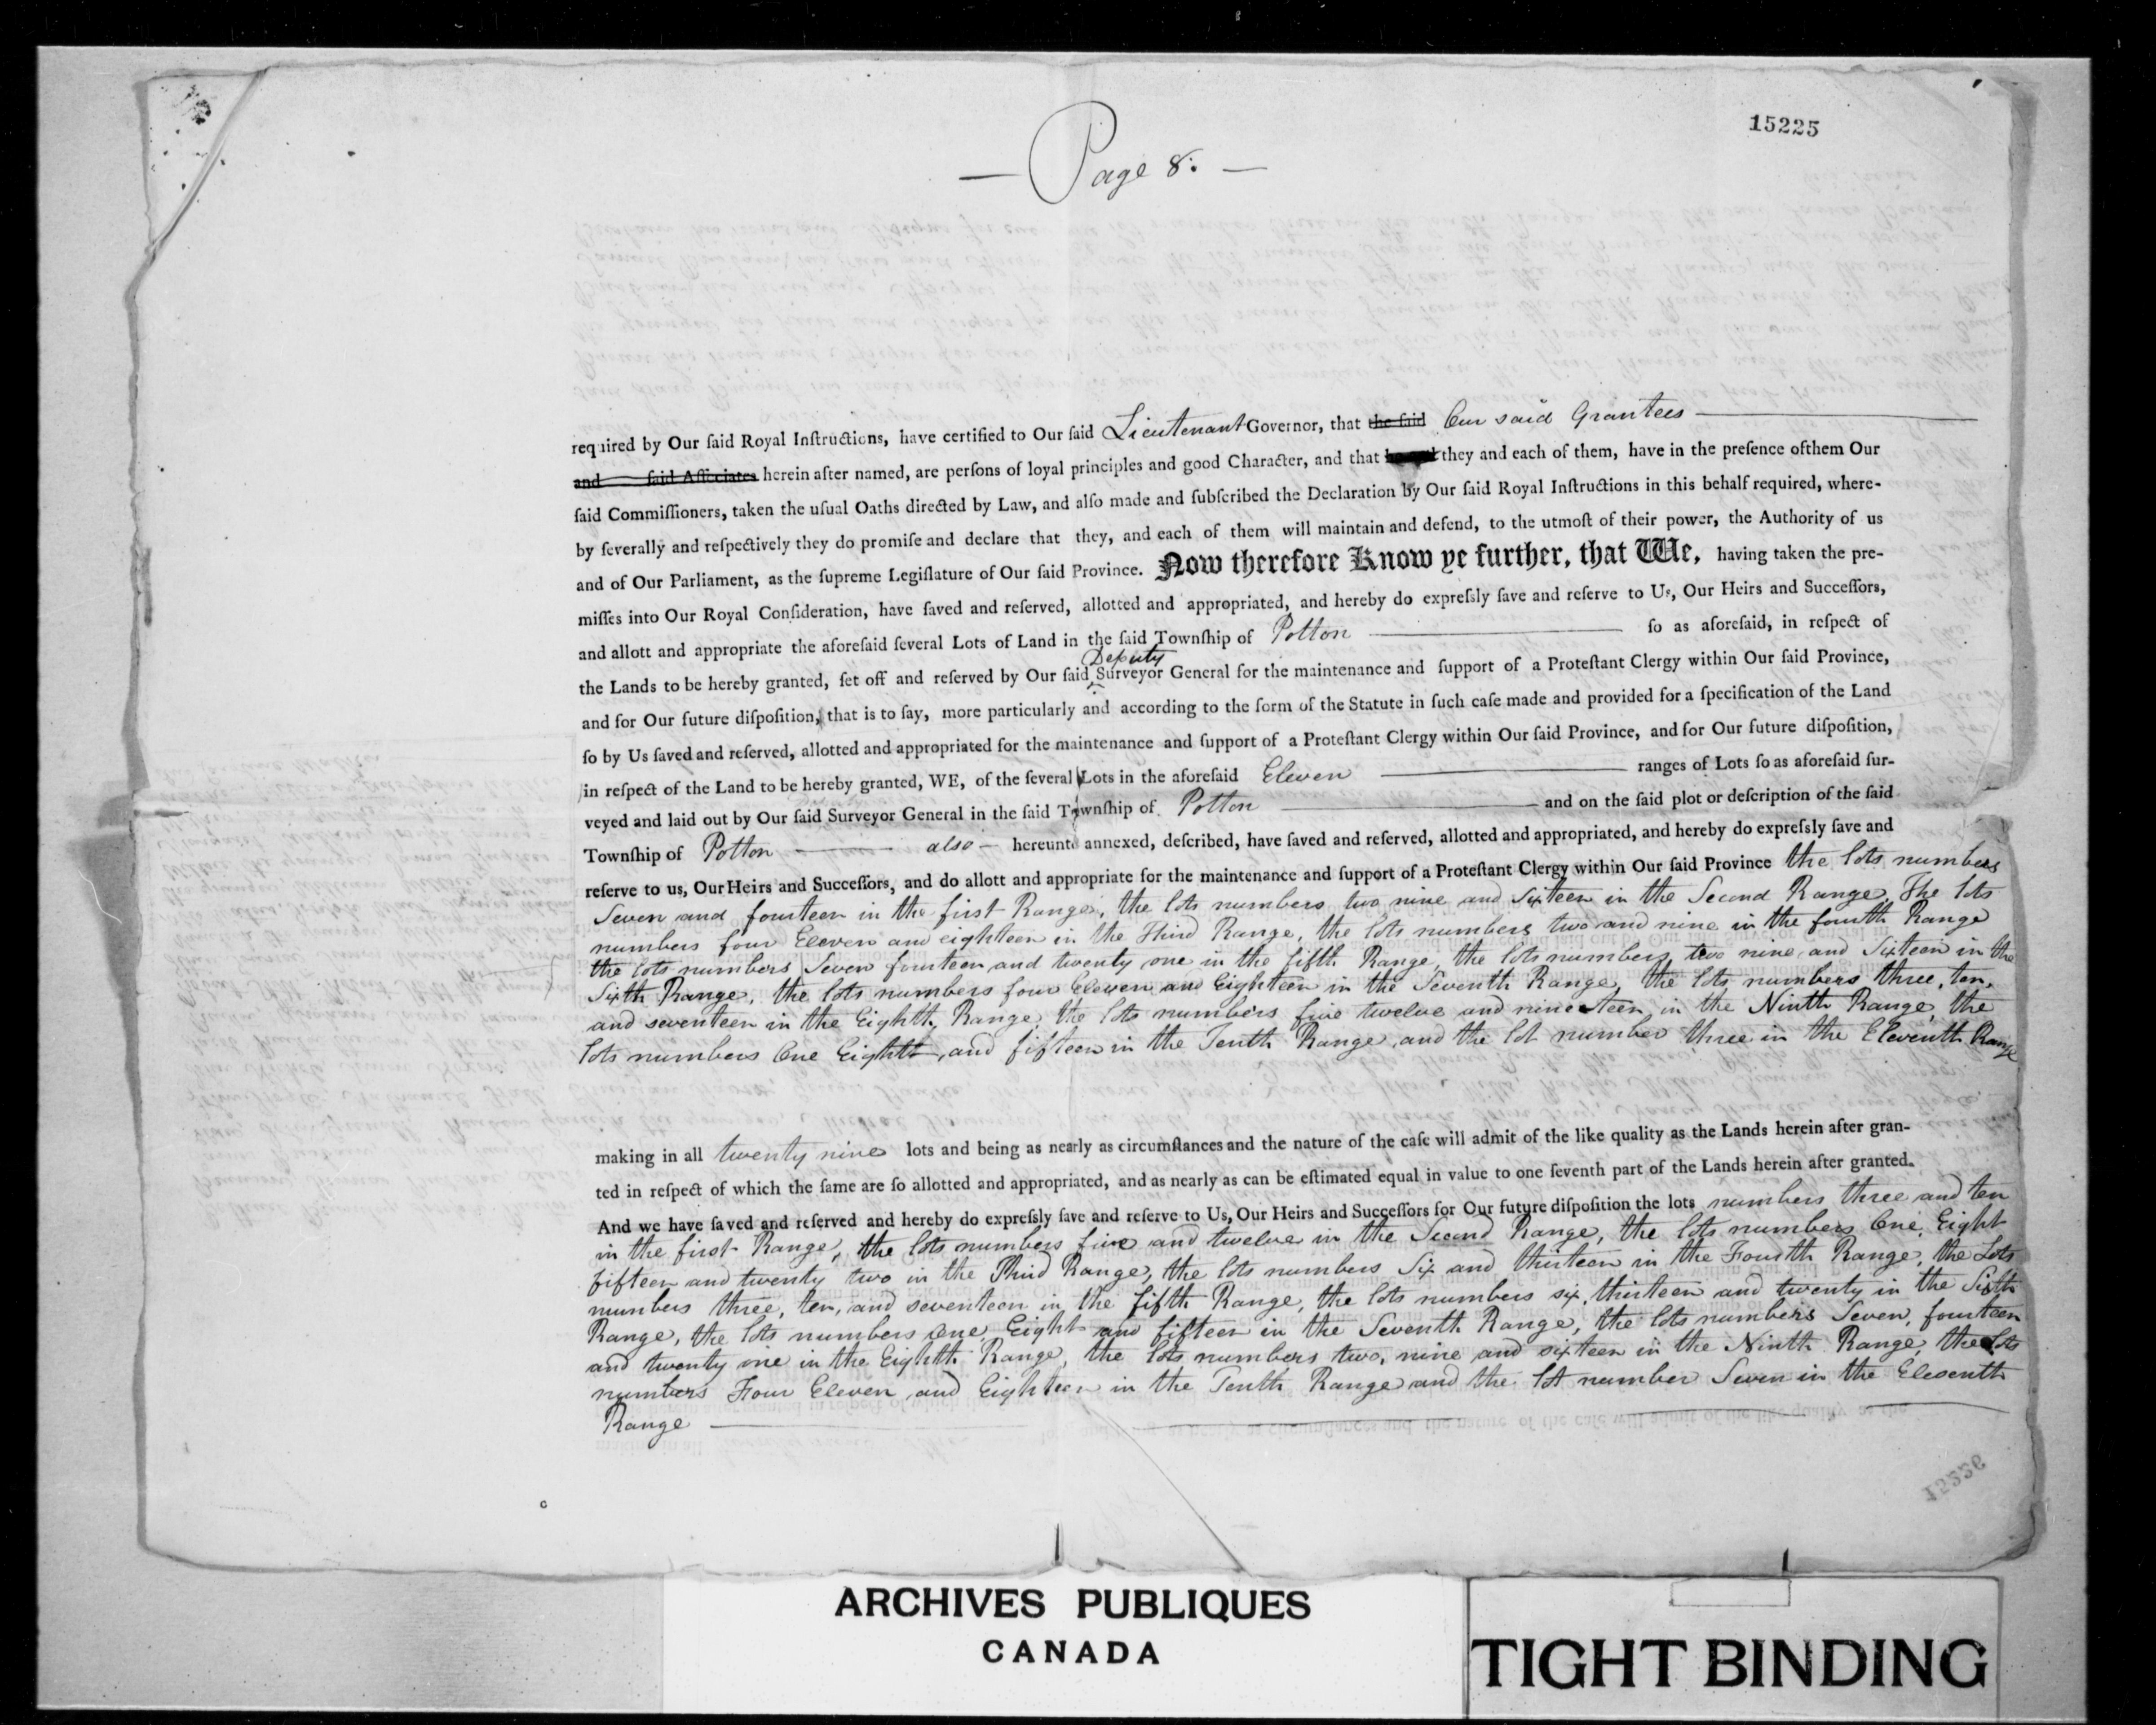 15225
— Page 8. —
required by Our ſaid Royal Inſtructions, have certified to Our ſaid Lieutenant Governor, that the ſaid Our said Grantees
and ſaid Aſſociates herein after named, are perſons of loyal principles and good Character, and that they and each of them, have in the preſence ofthem Our
ſaid Commiſſioners, taken the uſual Oaths directed by Law, and alſo made and ſubſcribed the Declaration by Our ſaid Royal Inſtructions in this behalf required, where-
by ſeverally and reſpectively they do promiſe and declare that they, and each of them will maintain and defend, to the utmoſt of their power, the Authority of us
and of Our Parliament, as the ſupreme Legiſlature of Our ſaid Province. Now therefore Know ye further, that We, having taken the pre-
miſſes into Our Royal Conſideration, have ſaved and reſerved, allotted and appropriated, and hereby do expreſsly ſave and reſerve to Us, Our Heirs and Succeſſors,
and allott and appropriate the aforeſaid ſeveral Lots of Land in the ſaid Townſhip of Potton ſo as aforeſaid, in reſpect of
Deputy
the Lands to be hereby granted, ſet off and reſerved by Our ſaid ‸ Surveyor General for the maintenance and ſupport of a Proteſtant Clergy within Our ſaid Province,
and for Our future diſpoſition, that is to ſay, more particularly and according to the form of the Statute in ſuch caſe made and provided for a ſpecification of the Land
ſo by Us ſaved and reſerved, allotted and appropriated for the maintenance and ſupport of a Proteſtant Clergy within Our ſaid Province, and for Our future diſpoſition,
in reſpect of the Land to be hereby granted, WE, of the ſeveral Lots in the aforeſaid Eleven ranges of Lots ſo as aforeſaid ſur-
veyed and laid out by Our ſaid Surveyor General in the ſaid Townſhip of Potton and on the ſaid plot or deſcription of the ſaid
Townſhip of Potton — also — hereunto annexed, deſcribed, have ſaved and reſerved, allotted and appropriated, and hereby do expreſsly ſave and
reſerve to us, Our Heirs and Succeſſors, and do allott and appropriate for the maintenance and ſupport of a Proteſtant Clergy within Our ſaid Province the lots numbers
Seven and fourteen in the first Range, the lots numbers two nine and Sixteen in the Second Range, The lots
numbers four Eleven and eighteen in the Third Range, the lots numbers two and nine in the fourth Range
the lots numbers Seven fourteen and twenty one in the fifth Range, the lots numbers two nine and Sixteen in the
Sixth Range, the lots numbers four Eleven and Eighteen in the Seventh Range, the lots numbers three, ten,
and seventeen in the Eighth Range, the lots numbers five twelve and nineteen in the Ninth Range, the
lots numbers One Eighth, and fifteen in the Tenth Range, and the lot number three in the Eleventh Range
making in all twenty nine lots and being as nearly as circumſtances and the nature of the caſe will admit of the like quality as the Lands herein after gran-
ted in reſpect of which the ſame are ſo allotted and appropriated, and as nearly as can be eſtimated equal in value to one ſeventh part of the Lands herein after granted.
And we have ſaved and reſerved and hereby do expreſsly ſave and reſerve to Us, Our Heirs and Succeſſors for Our future diſpoſition the lots numbers three and ten
in the first Range, the lots numbers five and twelve in the Second Range, the lots numbers One, Eight
fifteen and twenty two in the Third Range, the lots numbers Six and thirteen in the Fourth Range, the Lots
numbers three, ten, and seventeen in the fifth Range, the lots numbers six, thirteen and twenty in the Sixth
Range, the lots numbers One, Eight and fifteen in the Seventh Range, the lots numbers Seven, fourteen
and twenty one in the Eighth Range, the lots numbers two, nine and sixteen in the Ninth Range, the Lots
numbers Four Eleven and Eighteen in the Tenth Range and the lot number Seven in the Eleventh
Range
15226
ARCHIVES PUBLIQUES
CANADA
TIGHT BINDING